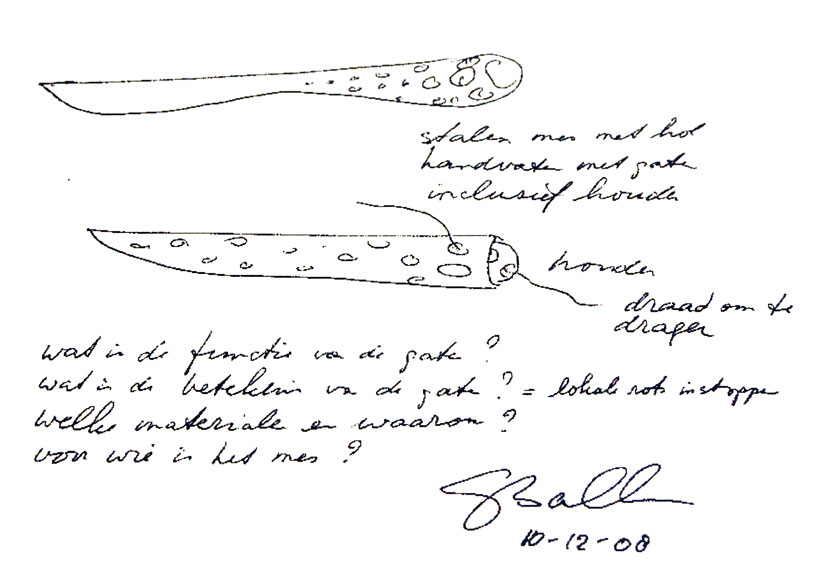 stalen mes met hol
handvaten met gaten
inclusief houder
houder
draad om te
dragen
wat is de functie van de gaten?
wat is de betekenis van de gaten? = lokale rots instoppen
welke materialen en waarom?
voor wie is het mes?
10-12-08